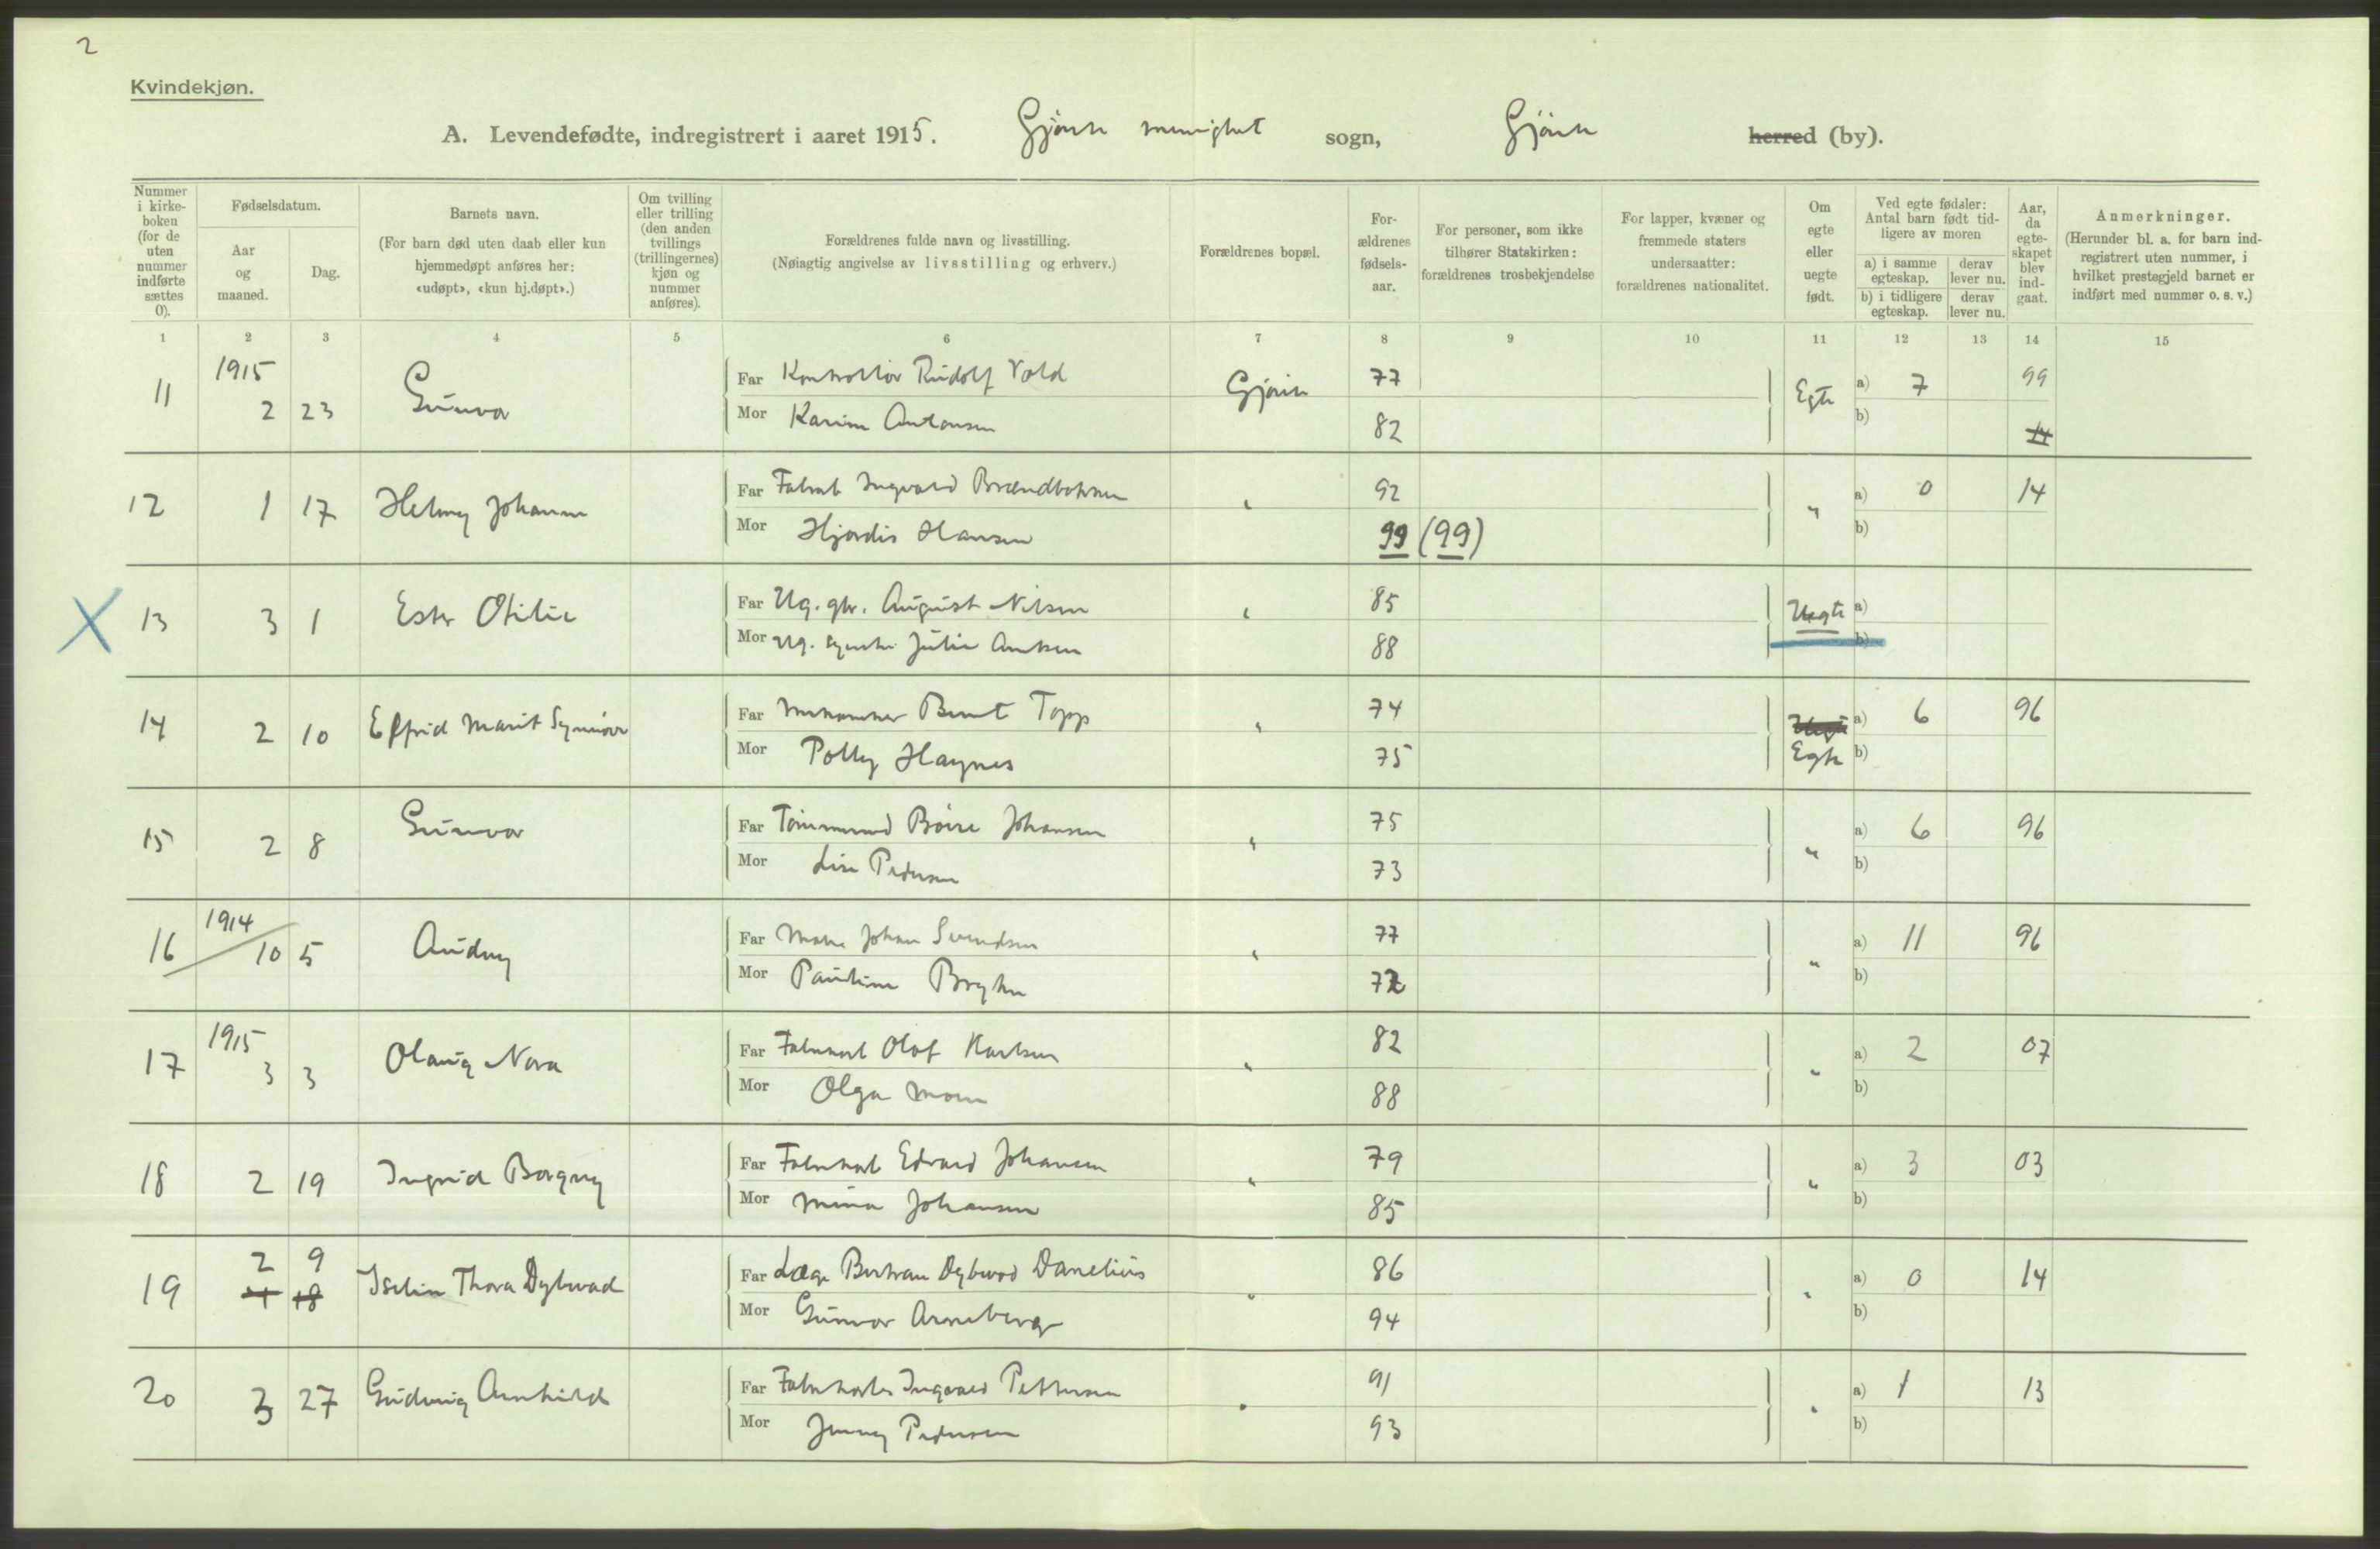 2
Kvindekjøn.
A. Levendefødte, indregistrert i aaret 1915. Gjøvik menighet sogn, Gjøvik herred (by).
Nummer i kirke-boken (for de uten nummer indførte sættes 0).
Fødselsdatum.
Aar og maaned.
Dag.
Barnets navn.
(For barn død uten daab eller kun hjemmedøpt anføres her: «udøpt», «kun hj.døpt».)
Om tvilling eller trilling (den anden tvillings (trillingernes) kjøn og nummer anføres).
Forældrenes fulde navn og livsstilling.
(Nøiagtig angivelse av livsstilling og erhverv.)
Forældrenes bopæl.
For-ældrenes fødsels-aar.
For personer, som ikke tilhører Statskirken: forældrenes trosbekjendelse
For lapper, kvæner og fremmede staters undersaatter: forældrenes nationalitet.
Om egte eller uegte født.
Ved egte fødsler: Antal barn født tid-ligere av moren
a) i samme egteskap.
derav lever nu.
b) i tidligere egteskap.
derav lever nu.
Aar, da egte-skapet blev ind-gaat.
Anmerkninger.
(Herunder bl. a. for barn ind-registrert uten nummer, i hvilket prestegjeld barnet er indført med nummer o. s. v.)
1 2 3 4 5 6 7 8 9 10 11 12 13 14 15
11 1915 2 23 Gunvor Far Kontrollør Rudolf Vold Gjøvik 77 Egte a) 7 99
Mor Karine Antonsen 82 b) 14
12 1 17 Helmy Johanne Far Fabrarb Ingvald Brændbakken " 92 " a) 0 14
Mor Hjørdis Hansen 99 (99) b)
13 3 1 Ester Otilie Far Ug. August Nilsen " 85 Uegte a)
Mor Ug. Julie 88 b)
14 2 10 Elfrid Marit Synnøve Far Bernt Topp " 74 Uegte a) 6 96
Mor Polly Haynes 75 Egte b)
15 2 8 Gunvor Far Tømmermand Børre Johansen " 75 " a) 6 96
Mor Lise Pedersen 73 b)
16 1914 10 5 Audny Far Maler Johan Svendsen " 77 " a) 11 96
Mor Pauline Bryhn 72 b)
17 1915 3 3 Olaug Nora Far Fabrikarb Olaf Karlsen " 82 " a) 2 07
Mor Olga Moen 88 b)
18 2 19 Ingrid Borgny Far Fabrikarb Edvard Johansen " 79 " a) 3 03
Mor Mina Johansen 85 b)
19 2 9 Iselin Thora Dybwad Far Læge Bertram Dybwad Danelius " 86 " a) 0 14
1 18 Mor Gunvor Arneberg 94 b)
20 3 27 Gudveig Arnhild Far Fabrikarb Ingvald Pettersen " 91 " a) 1 13
Mor Jenny Pedersen 93 b)